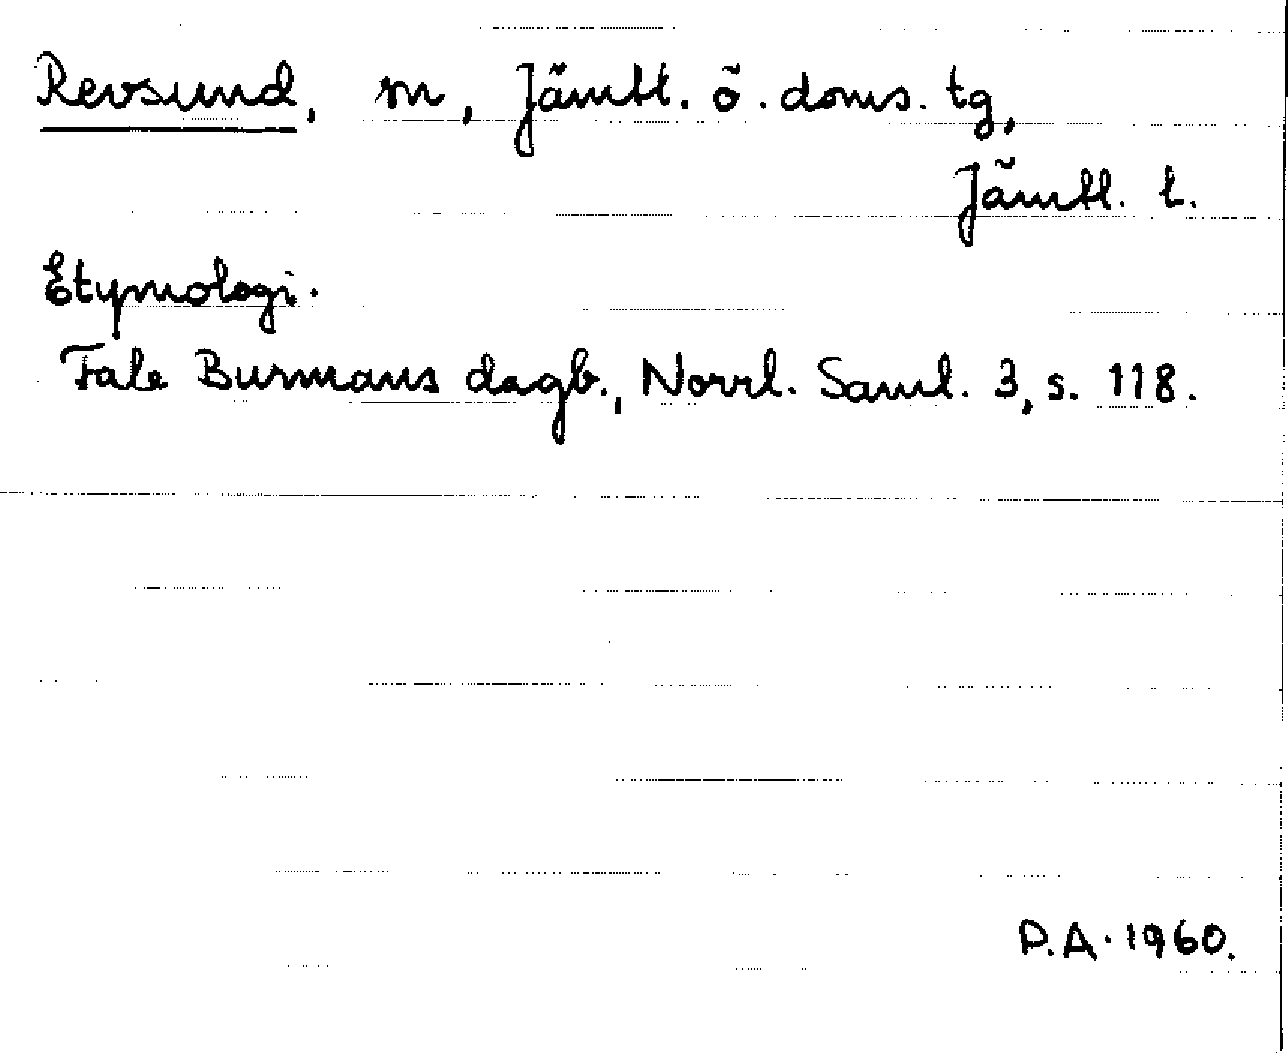 Revsund, sn, Jämtl. ö. doms. tg,
Jämtl. l.
Etymologi.
Fale Burmans dagb., Norrl. Saml. 3, s. 118.
P.A. 1960.